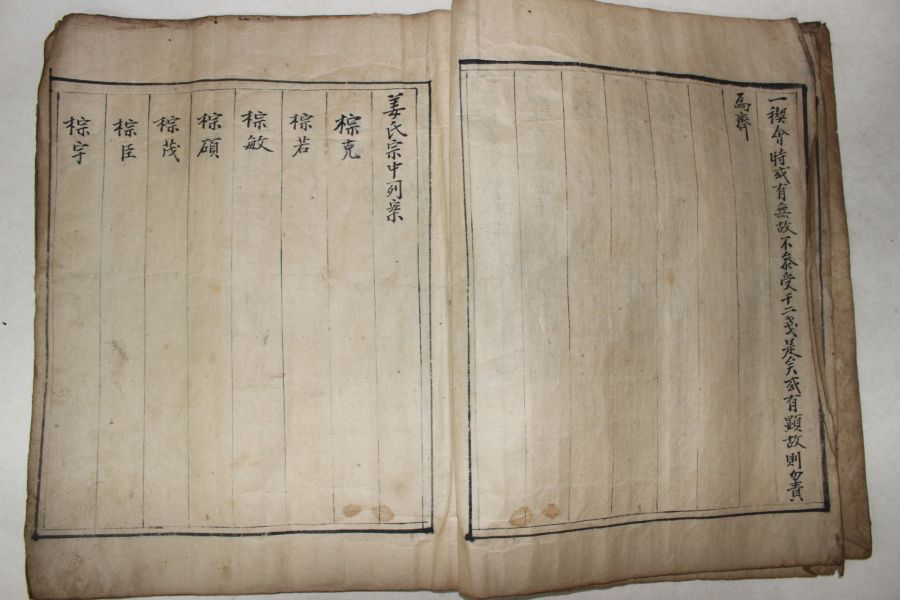 一禊會時或有無故不叅受十二戔是矣或有顯故則勿責
爲齊
姜氏宗中列案
棕克
棕若
棕敏
棕碩
棕茂
棕臣
棕宇